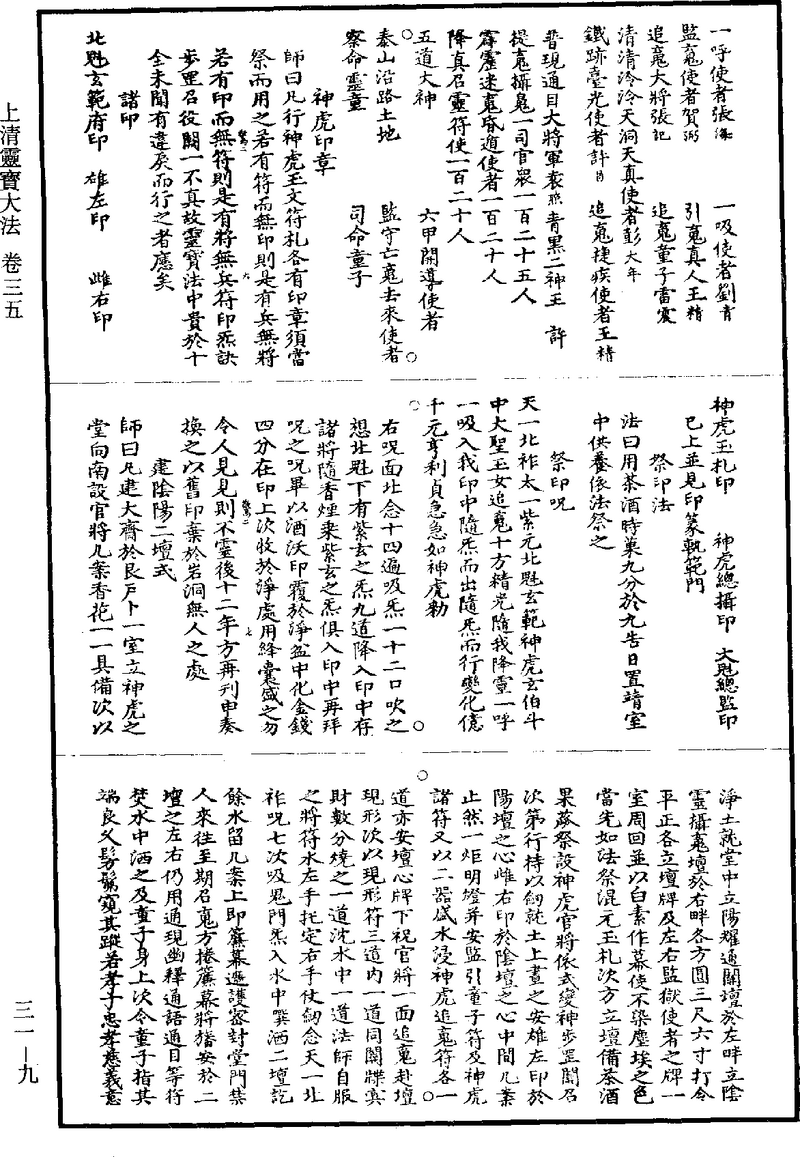 上清靈寶大法 卷三五
三一—九
一呼使者張海 一吸使者劉青
監䰟使者賀弼 引䰟真人王精
追䰟大將張記 追䰟童子雷震
清清泠泠天洞天真使者彭大年
鐵跡臺光使者許 追䰟捷疾使者王精
普現通目大將軍裴 青黑二神王 許
提䰟攝䰟一司官衆一百二十五人
霹靂迷䰟昏遁使者一百二十人
降真召靈符使一百二十人
五道大神 六甲開導使者
泰山沿路土地 監守亡䰟去來使者
察命靈童 司命童子
神虎印章
師曰凡行神虎玉文符札各有印章須當
祭而用之若有符而無印則是有兵無將
若有印而無符則是有將無兵符印炁訣
步罡召役闕一不真故靈寶法中貴於十
全未聞有違戾而行之者應矣
諸印
北魁玄範府印 雄左印 雌右印
神虎玉札印 神虎總攝印 大魁總監印
已上並見印篆軌範門
祭印法
法曰用茶酒時菓九分於九告日置靖室
中供養依法祭之
祭印呪
天一北祚太一紫元北魁玄範神虎玄伯斗
中大聖玉女追䰟十方精光隨我降靈一呼
一吸入我印中隨炁而出隨炁而行變化億
千元亨利貞急急如神虎勑
右呪面北念十四遍吸炁一十二口吹之
想北魁下有紫玄之炁九道降入印中存
諸將隨香煙乗紫玄之炁俱入印中再拜
呪之呪畢以酒沃印覆於淨盆中化金錢
四分在印上次收於淨處用絳囊盛之勿
令人見見則不靈後十二年方再刋申奏
換之以舊印棄於岩洞無人之處
建陰陽二壇式
師曰凡建大齋於艮戶卜一室立神虎之
堂向南設官將几案香花一一具備次以
淨土就堂中立陽耀通關壇於左畔立陰
靈攝䰟壇於右畔各方圓三尺六寸打令
平正各立壇牌及左右監獄使者之牌一
室周回並以白素作幕使不染塵埃之色
當先如法祭混元玉札次方立壇備茶酒
果蔬祭設神虎官將依式變神步罡關召
次第行持以劒就土上畫之安雄左印於
陽壇之心雌右印於陰壇之心中間几案
止然一炬明燈并安監引童子符及神虎
諸符又以二器盛水浸神虎追䰟符各一
道亦安壇心牌下祝官將一面追䰟赴壇
現形次以現形符三道内一道同關牒㝠
財數分燒之一道沈水中一道法師自服
之將符水左手托定右手仗劒念天一北
祚呪七次吸鬼門炁入水中噀洒二壇訖
餘水留几案上即簾幕遮護密封堂門禁
人來往至期召䰟方捲簾幕將猪安於二
壇之左右仍用通現幽釋通語通目等符
焚水中洒之及童子身上次令童子指其
端良父髣髴䆪其蹤若孝子忠孝慈義意